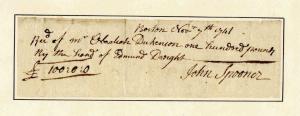 Boston Novr 7th 1741
Recd of Mr Obadiah Dickenson one hundred pounds
By the hand of Edmund Dwight
£ 100:0:0
John Spooner